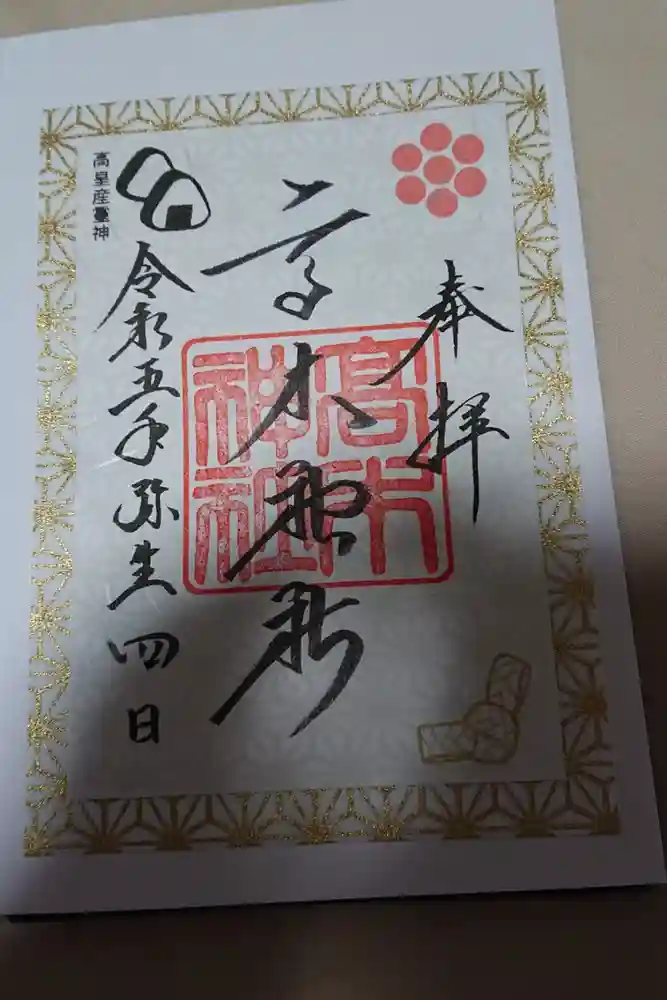 奉拝
高木神社
高木
神社
令和五年弥生四日
高皇産靈神